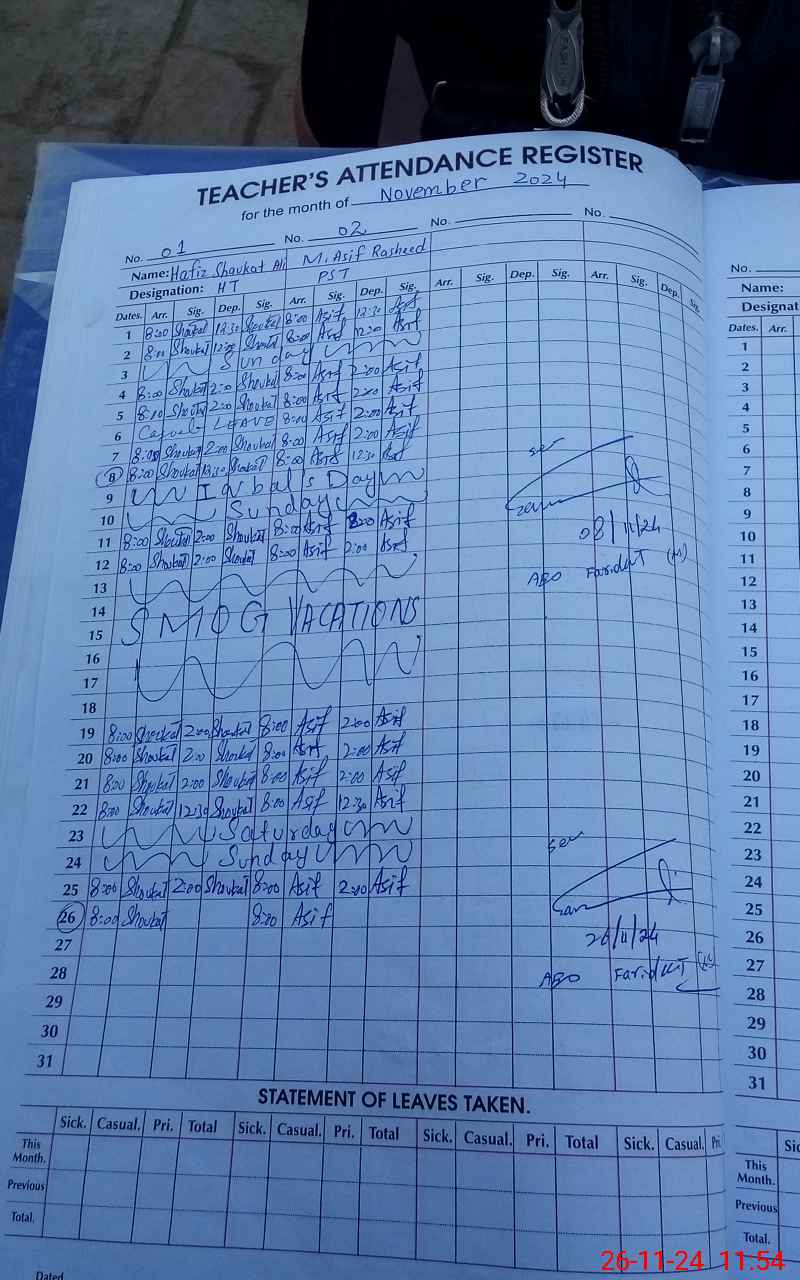 TEACHER'S ATTENDANCE REGISTER
for the month of November 2024
No. 01 No. 02 No. No.
Name: Hafiz Shoukat Ali M. Asif Rasheed
Designation: HT PST
Dates. Arr. Sig. Dep. Sig. Arr. Sig. Dep. Sig. Arr. Sig. Dep. Sig. Arr. Sig. Dep. Sig.
1 8:00 Shoukat 12:30 Shoukat 8:00 Asif 12:30 Asif
2 8:00 Shoukat 12:00 Shoukat 8:00 Asif 12:00 Asif
3 Sunday
4 8:00 Shoukat 2:00 Shoukat 8:00 Asif 2:00 Asif
5 8:00 Shoukat 2:00 Shoukat 8:00 Asif 2:00 Asif
6 Casual LEAVE 8:00 Asif 2:00 Asif
7 8:00 Shoukat 2:00 Shoukat 8:00 Asif 2:00 Asif
8 8:00 Shoukat 12:30 Shoukat 8:00 Asif 12:30 Asif
9 Iqbal's Day
10 Sunday
11 8:00 Shoukat 2:00 Shoukat 8:00 Asif 2:00 Asif
08/11/24
12 8:00 Shoukat 2:00 Shoukat 8:00 Asif 2:00 Asif
AEO Farid KT (M)
13
14
15 SMOG VACATIONS
16
17
18
19 8:00 Shoukat 2:00 Shoukat 8:00 Asif 2:00 Asif
20 8:00 Shoukat 2:00 Shoukat 8:00 Asif 2:00 Asif
21 8:00 Shoukat 2:00 Shoukat 8:00 Asif 2:00 Asif
22 8:00 Shoukat 12:30 Shoukat 8:00 Asif 12:30 Asif
23 Saturday
24 Sunday
25 8:00 Shoukat 2:00 Shoukat 8:00 Asif 2:00 Asif
26 8:00 Shoukat 8:00 Asif
26/11/24
27
AEO Farid KT (M)
28
29
30
31
STATEMENT OF LEAVES TAKEN.
Sick. Casual. Pri. Total Sick. Casual. Pri. Total Sick. Casual. Pri. Total Sick. Casual. Pri.
This Month.
Previous
Total.
Dated
No.
Name:
Designat
Dates. Arr.
1
2
3
4
5
6
7
8
9
10
11
12
13
14
15
16
17
18
19
20
21
22
23
24
25
26
27
28
29
30
31
Sic
This Month.
Previous
Total.
26-11-24 11:54